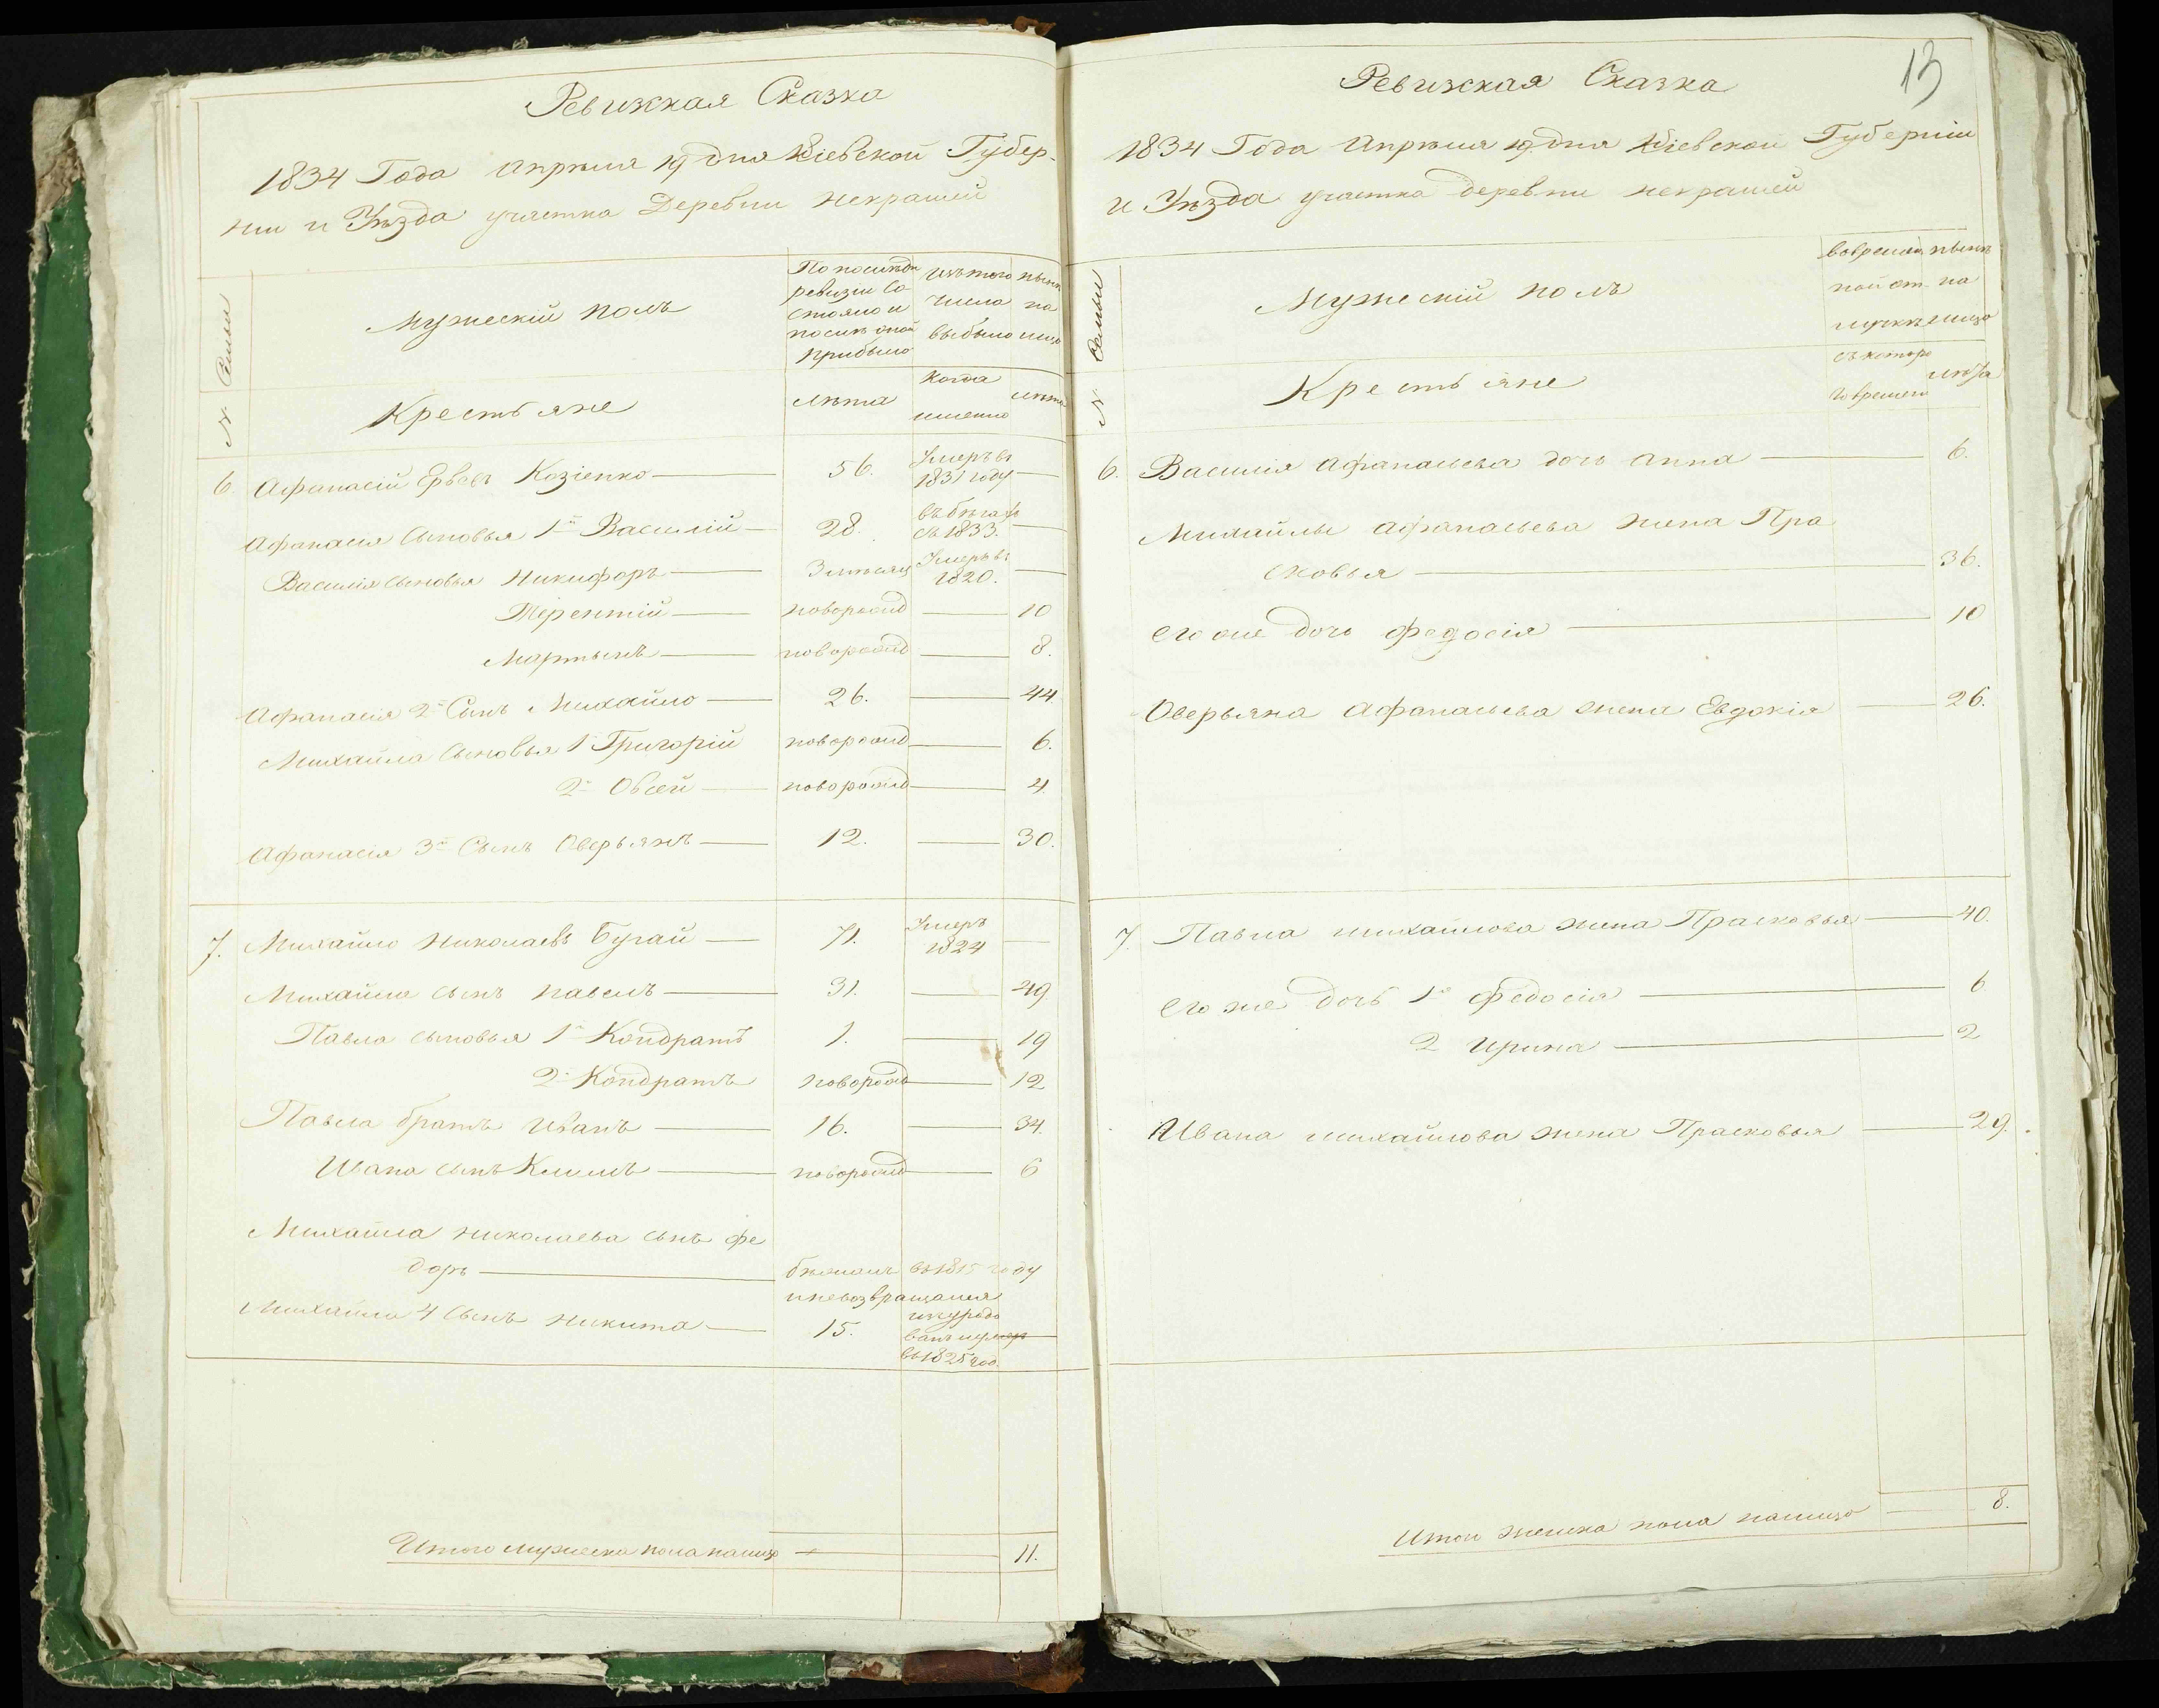 Ревизкая Сказка
1834 Года Апреля 19 дня Кіевской Губер-
ніи и Уѣзда участка Деревни Некрашей
№ Семьи
Мужескій полъ
По послѣдн
ревизіи со
стояло и
послѣ оной
прибыло
Изътого
числа
выбыло
нынѣ
на
лицо
Крестьяне
лѣта
когда
именно
лѣта
6 Афанасій Козіенко 56. Умеръ въ
1831 году
Афанасія сыновья 1й Василій 28. въ бегах
съ 1833.
Василія сыновья Никифоръ 3 месяц Умеръ въ
1820.
Терентій поворожд 10
Мартынъ поворожд 8.
Афанасія 2й Сынъ Михайло 26. 44
Михайла сыновья 1 Григорій поворожд 6.
2й Овсей поворожд 4.
Афанасія 3й Сынъ Оверьянъ 12. 30.
7. Михайло Николаевъ Бугай 71. Умеръ
1824
Михайла сынъ Павелъ 31. 49
Павла сыновья 1й Кондратъ 1. 19
2й Кондратъ поворожд 12
Павла братъ Иванъ 16. 34.
Ивана сынъ Климъ поворожд 6
Михайла Николаева сынъ Фе
доръ бежалъ въ 1815 году
и невозвращался
Михайлы 4 сынъ Никита 15.
въ 1825 год.
Итого мужеска пола налицо 11.
13
Ревизская Сказка
1834 Года Апреля 19 дня Кіевской Губерніи
и Уѣзда участка деревни Некрашей
№ Семьи
Мужескій полъ
вовремен
ной от
лучкѣ
нынѣ
на
лицо
Крестьяне
съ которо
го времени
лѣта
6. Василія Афанасьева дочь Анна 6.
Михайлы Афанасьева жена Пра
сковья 36.
его же дочь Федосія 10
Оверьяна Афанасьева жена Евдокія 26.
7. Павла Михайлова жена Прасковья 40.
его же дочь 1я Федосія 6
2 Ирина 2
Ивана Михайлова жена Прасковья 29.
Итого женска пола налицо 8.